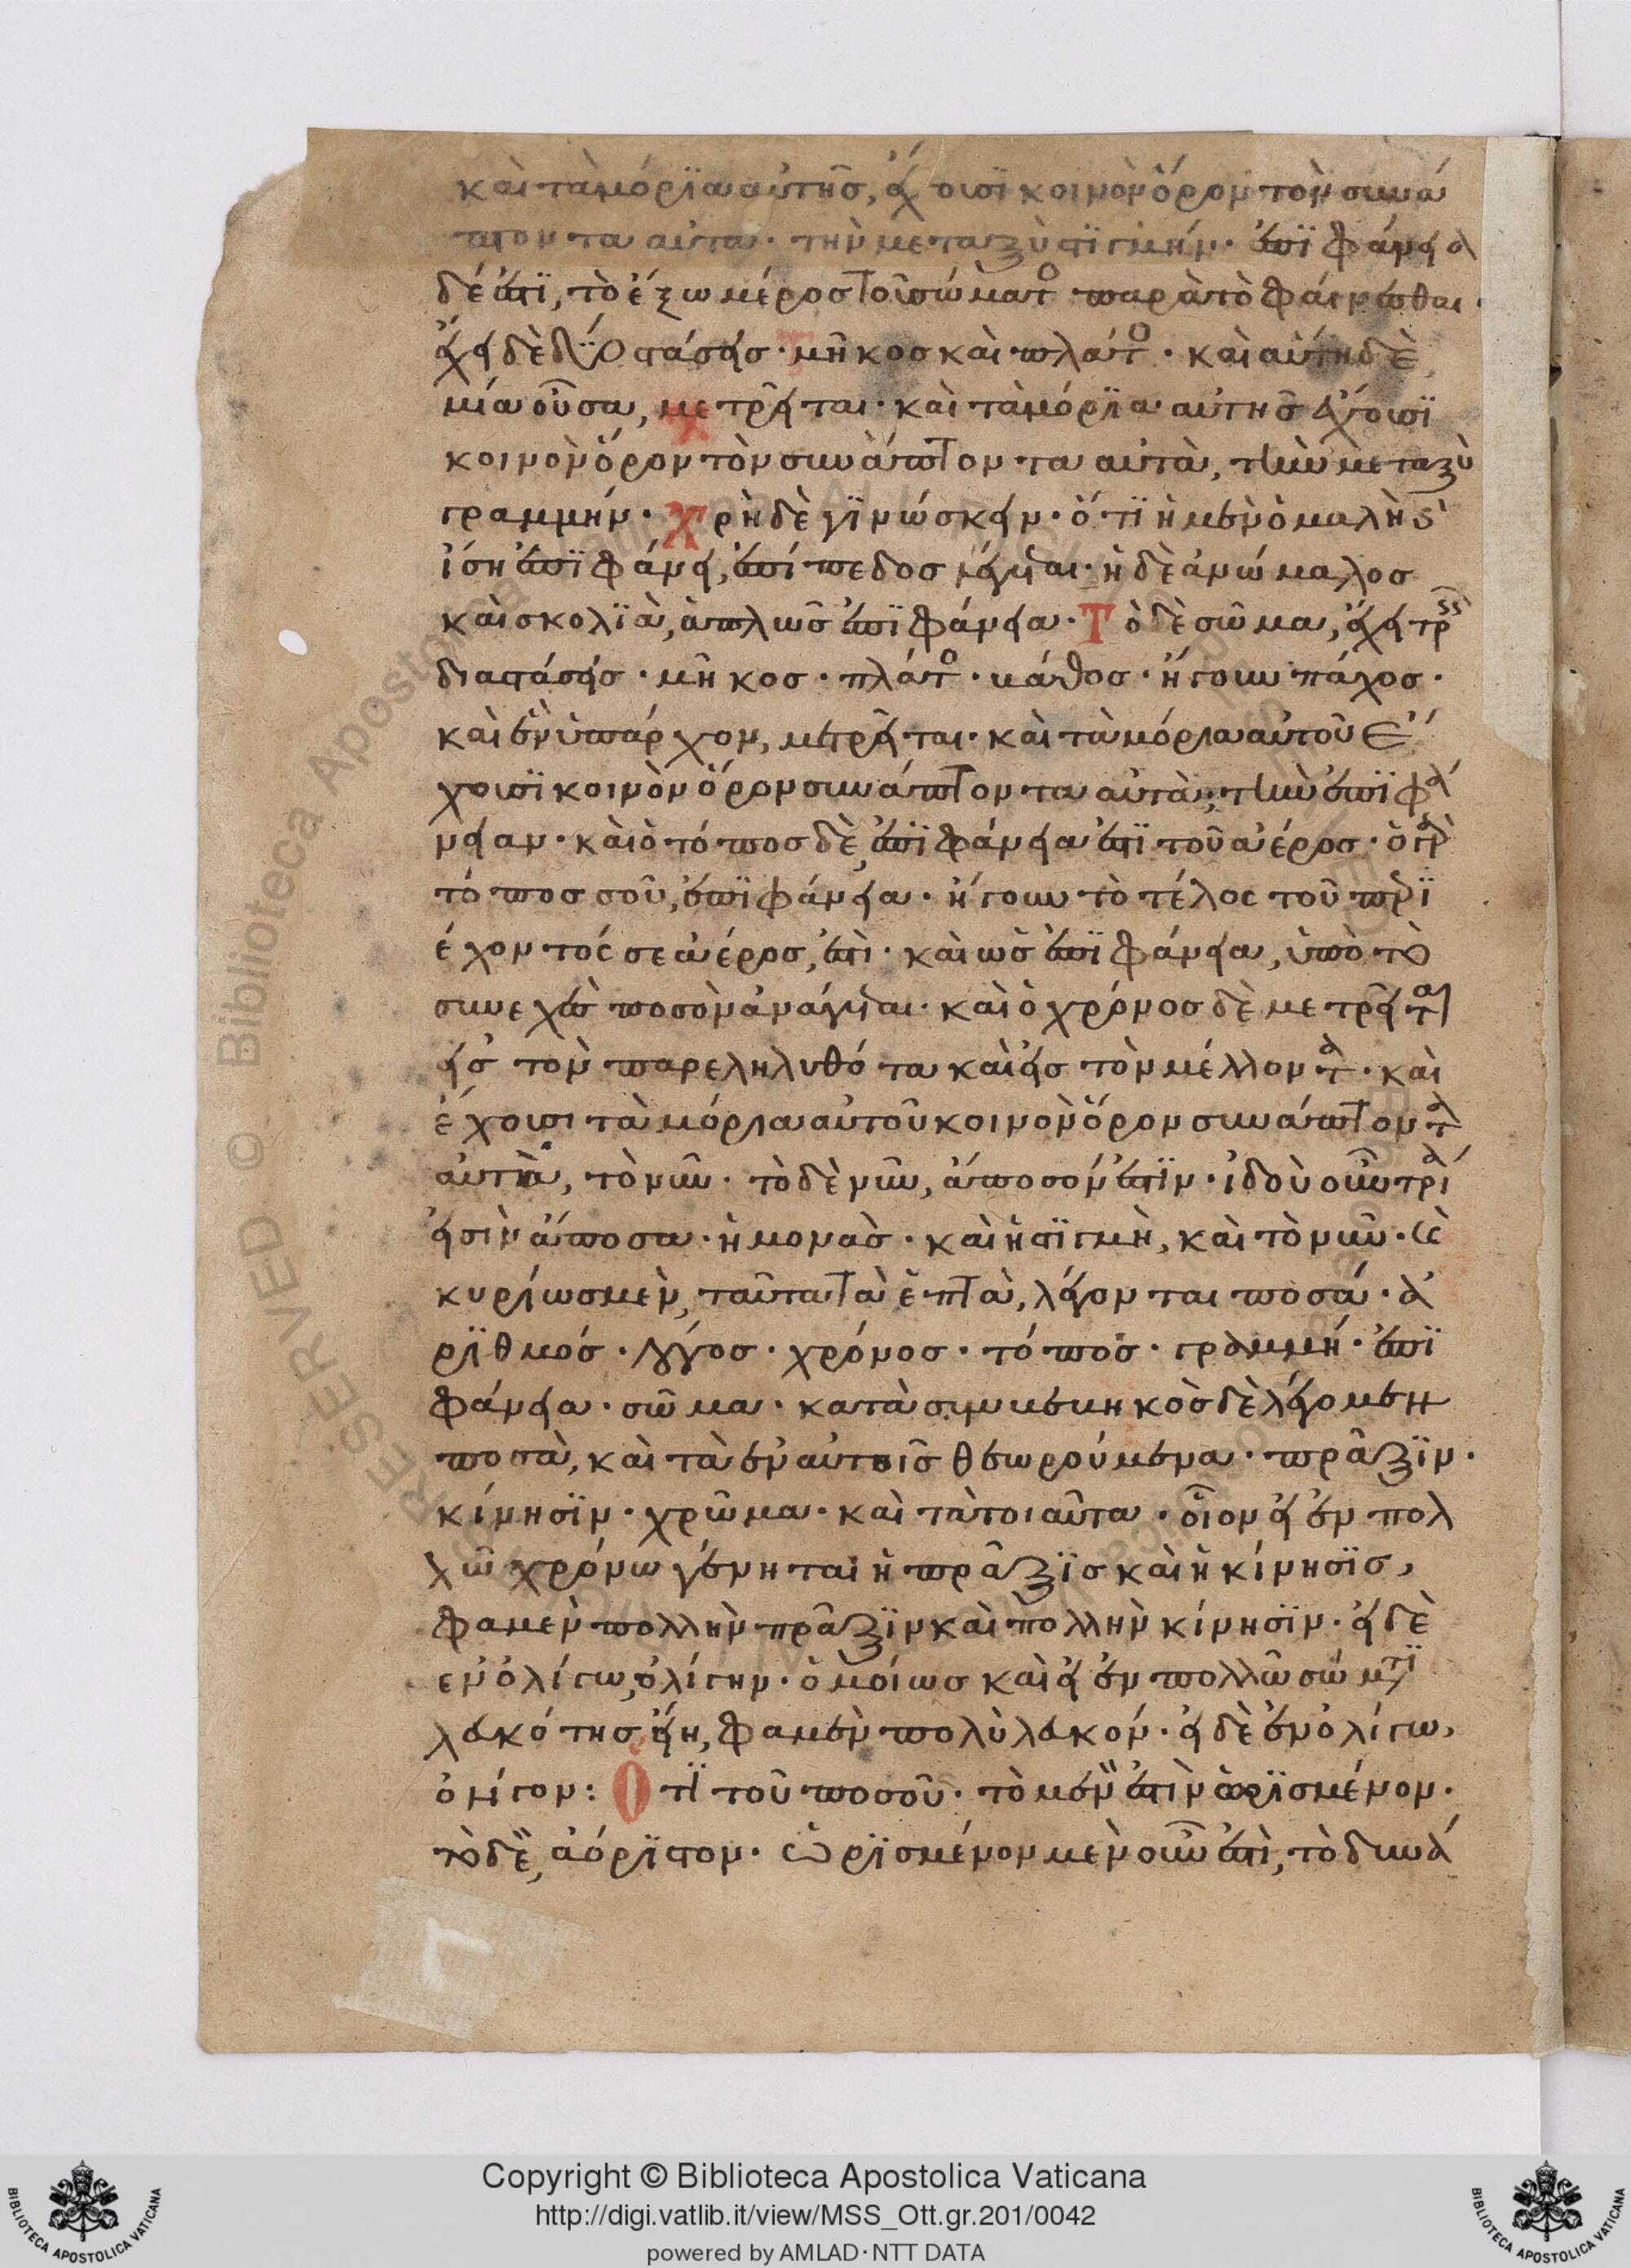 καὶ τὰ μόρϊα αὐτῆς, ἔχουσϊ κοινὸν ὅρον τὸν συνά
πτοντα αὐτὰ· τὴν μεταξὺ στϊγμήν· ἐπϊφάνεια
δέ ἐστϊ, τὸ ἔξω μέρος τοῦ σώματος παρὰ τὸ φαίνεσθαι·
ἔχει δὲ δύο διαστάσεις· μῆκος καὶ πλάτος· καὶ αὕτη δὲ
μία οὖσα, μετρεῖται· καὶ τὰ μόρϊα αὐτῆς ἔχουσϊ
κοινὸν ὅρον τὸν συνάπτοντα αὐτὰ, τὴν μεταξὺ
γραμμήν· χρὴ δὲ γϊνώσκειν· ὅτϊ ἡ μὲν ὁμαλὴ καὶ
ἴση ἐπϊφάνεια, ἐπίπεδος λέγεται· ἡ δὲ ἀνώμαλος
καὶ σκολϊὰ, ἁπλῶς ἐπϊφάνεια· Τὸ δὲ σῶμα, ἔχει τρεῖς
διαστάσεις· μῆκος· πλάτος· βάθος· ἤγουν πάχος·
καὶ ἓν ὑπάρχον, μετρεῖται· καὶ τὰ μόρια αὐτοῦ ἔ
χουσϊ κοινὸν ὅρον συνάπτοντα αὐτὰ· τὴν ἐπϊφά
νειαν· καὶ ὁ τόπος δὲ, ἐπϊφάνεια ἐστϊ τοῦ ἀέρος· ὁ γὰρ
τόπος σοῦ, ἐπϊφάνεια· ἤγουν τὸ τέλος τοῦ περϊ
έχοντός σε ἀέρος, ἐστὶ· καὶ ὡς ἐπϊφάνεια, ὑπὸ τὸ
συνεχὲς ποσὸν ἀνάγεται· καὶ ὁ χρόνος δὲ μετρεῖται
εἰς τὸν παρεληλυθότα καὶ εἰς τὸν μέλλοντα· καὶ
ἔχουσι τὰ μόρια αὐτοῦ κοινὸν ὅρον συνάπτοντα
αὐτὰ, τὸ νῦν· τὸ δὲ νῦν, ἄποσόν ἐστϊν· ἰδοὺ οὖν τρία
εἰσὶν ἄποσα· ἡ μονὰς· καὶ ἡ στϊγμὴ, καὶ τὸ νῦν· καὶ
κυρίως μὲν, ταῦτα τὰ ἑπτὰ, λέγονται ποσά· ἀ
ρϊθμός· λόγος· χρόνος· τόπος· γραμμή· ἐπϊ
φάνεια· σῶμα· κατὰ συμβεβηκὸς δὲ λέγομεν
ποσὰ, καὶ τὰ ἐν αὐτοῖς θεωρούμενα· πρᾶξϊν·
κίνησϊν· χρῶμα· καὶ τὰ τοιαῦτα· οἷον εἰ ἐν πολ
λῶ χρόνω γένηται ἡ πρᾶξϊς καὶ ἡ κίνησϊς,
φαμὲν πολλὴν πρᾶξϊν καὶ πολλὴν κίνησϊν· εἰ δὲ
ἐν ὀλίγω, ὀλίγην· ὁμοίως καὶ εἰ ἐν πολλῶ σώματϊ
λευκότης εἴη, φαμὲν πολὺ λευκόν· εἰ δὲ ἐν ὀλίγω,
ὀλίγον: Ὅτϊ τοῦ ποσοῦ· τὸ μέν ἐστὶν ὡρϊσμένον·
τὸ δὲ, ἀόρϊστον· ὡρϊσμένον μὲν οὖν ἐστὶ, τὸ δυνά
Copyright © Biblioteca Apostolica Vaticana
http://digi.vatlib.it/view/MSS_Ott.gr.201/0042
powered by AMLAD·NTT DATA
BIBLIOTECA APOSTOLICA VATICANA
BIBLIOTECA APOSTOLICA VATICANA